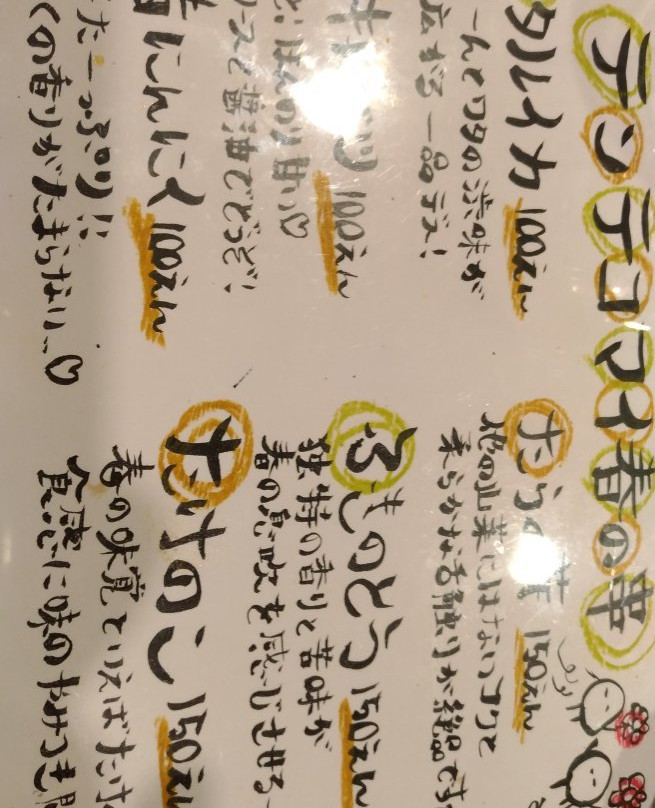 テンテコマイ春の串
タルイカ 100えん
ーんとワタの渋味が
広がる一品デス!
100えん
とほんのり甘い♡
ースと醤油でどうぞ!
にんにく 100えん
たーっぷり!!
くの香りがたまらない…♡
たらの芽 150えん
他の山菜にはないコクと
柔らかな舌触りが絶品です
ふきのとう 150えん
独特の香りと苦味が
春の息吹を感じさせる
たけのこ 150えん
春の味覚といえばたけ
食感に味のやみつき